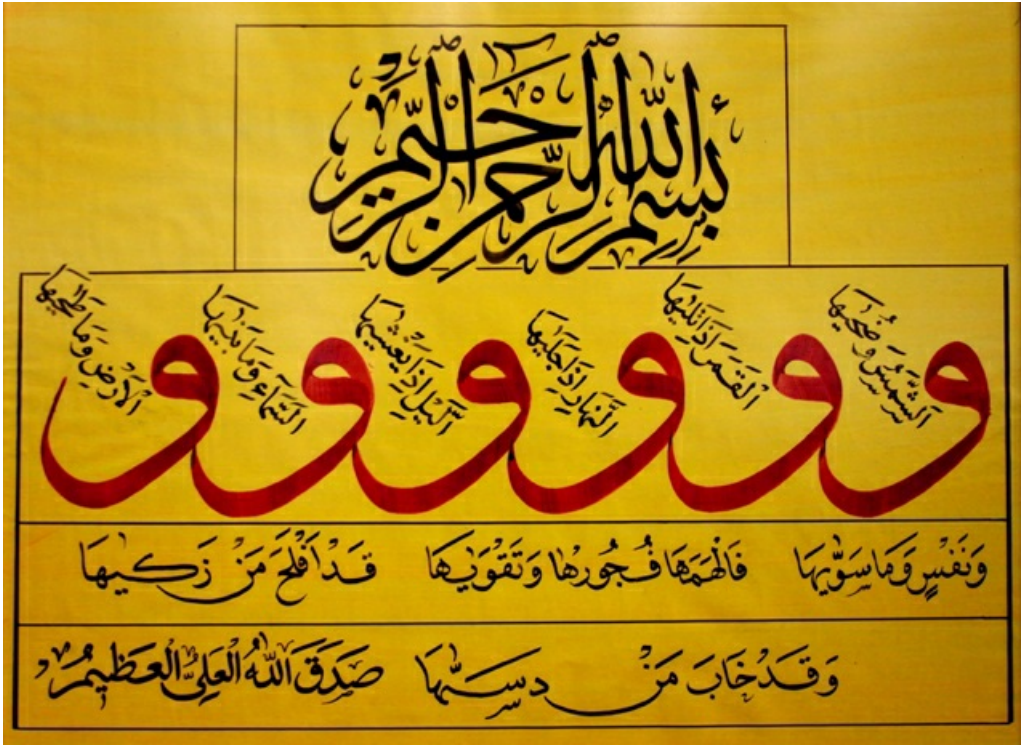 بِسْمِ اللّٰهِ الرَّحْمٰنِ الرَّحِيْمِ
و الشَّمْسِ وَضُحٰیهَا
و الْقَمَرِ اِذَا تَلٰیهَا
و النَّهَارِ اِذَا جَلّٰیهَا
و الَّیْلِ اِذَا یَغْشٰیهَا
و السَّمَاءِ وَمَا بَنٰیهَا
و الْاَرْضِ وَمَا طَحٰیهَا
وَنَفْسٍ وَمَا سَوّٰیهَا فَاَلْهَمَهَا فُجُورَهَا وَتَقْوٰیهَا قَدْ اَفْلَحَ مَنْ زَكّٰیهَا
وَقَدْ خَابَ مَنْ دَسّٰیهَا صَدَقَ اللّٰهُ الْعَلِیُّ الْعَظِیْمُ